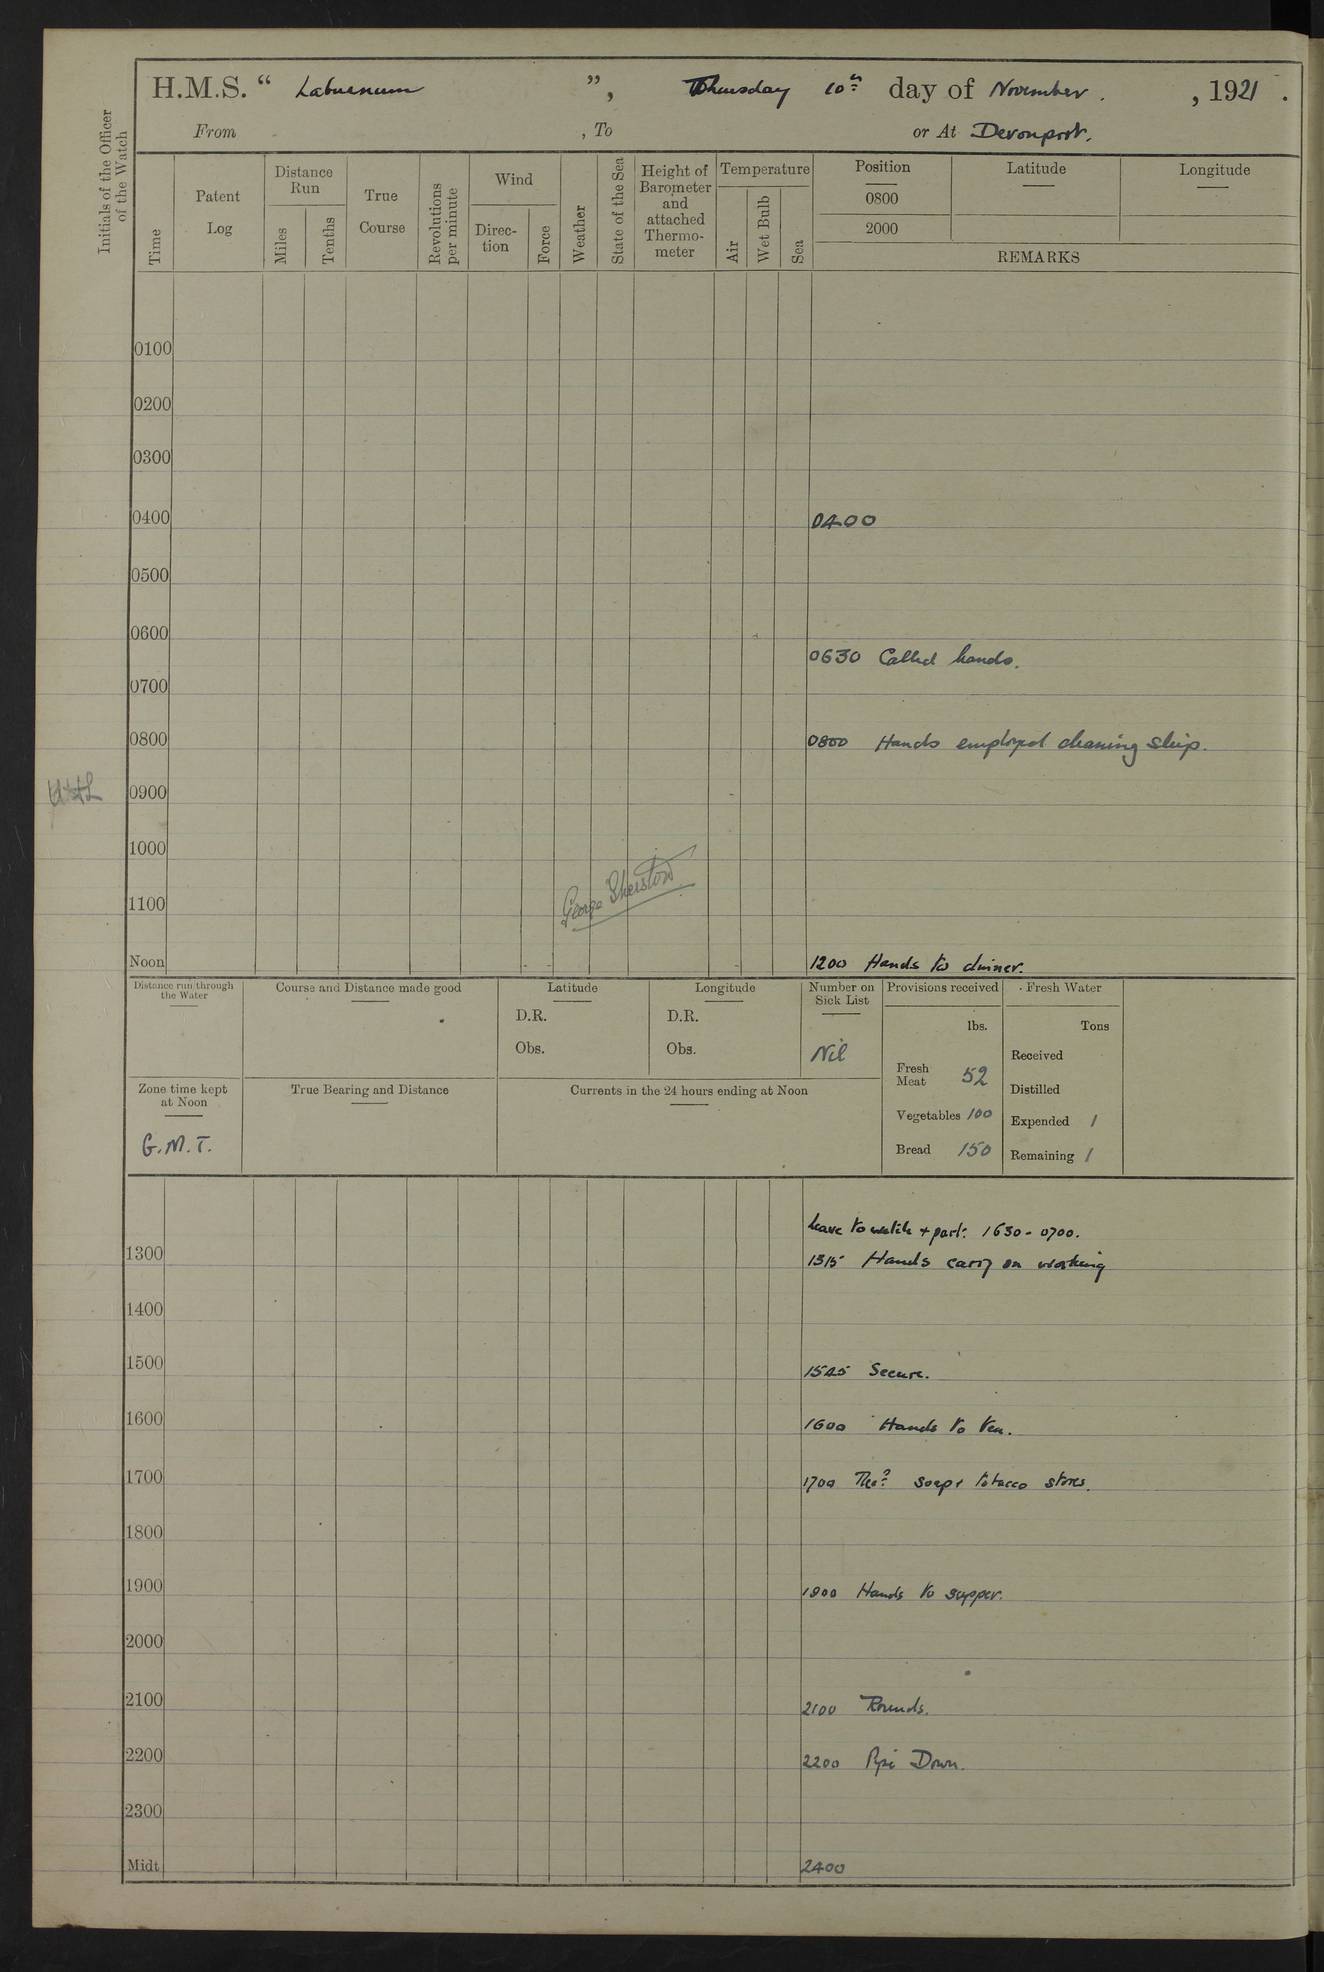 H.M.S. “ Laburnum ”, Thursday 10th day of November. , 1921.
From , To or At Devonport.
Initials of the Officer of the Watch
Time
Patent Log
Distance Run
Miles
Tenths
True Course
Revolutions per minute
Wind
Direction
Force
Weather
State of the Sea
Height of Barometer and attached Thermometer
Temperature
Air
Wet Bulb
Sea
Position
0800
2000
Latitude
Longitude
REMARKS
0100
0200
0300
0400 0400
0500
0600
0630 Called hands.
0700
0800 0800 Hands employed cleaning ship.
0900
1000
George Sherston
1100
Noon 1200 Hands to dinner.
Distance run through the Water
Course and Distance made good
Latitude
D.R.
Obs.
Longitude
D.R.
Obs.
Number on Sick List
Nil
Provisions received
lbs.
Fresh Meat 52
Vegetables 100
Bread 150
Fresh Water
Tons
Received
Distilled
Expended 1
Remaining 1
Zone time kept at Noon
G.M.T.
True Bearing and Distance
Currents in the 24 hours ending at Noon
Leave to watch + part. 1630 - 0700.
1300 1315 Hands carry on working
1400
1500 1545 Secure.
1600 1600 Hands to tea.
1700 1700 soap & tobacco stores.
1800
1900 1900 Hands to supper.
2000
2100 2100 Rounds.
2200 2200 Pipe Down.
2300
Midt 2400